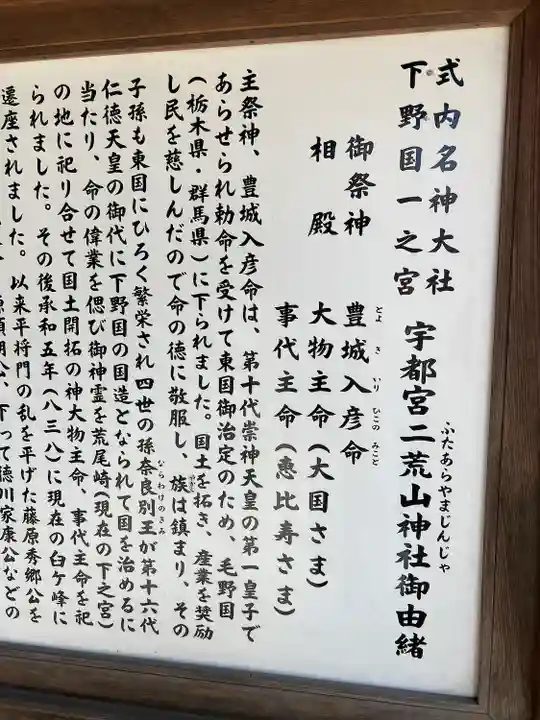 式内名神大社
下野国一之宮
宇都宮二荒山神社御由緒
ふたあらやまじんじゃ
御祭神 豊城入彦命
とよ き いり ひこの みこと
相殿 大物主命(大国さま)
事代主命(恵比寿さま)
主祭神、豊城入彦命は、第十代崇神天皇の第一皇子で
あらせられ勅命を受けて東国御治定のため、毛野国
(栃木県・群馬県)に下られました。国土を拓き、産業を奨励
し民を慈しんだので命の徳に敬服し、族は鎮まり、その
子孫も東国にひろく繁栄され四世の孫奈良別王が第十六代
ならわけのきみ
仁徳天皇の御代に下野国の国造となられて国を治めるに
当たり、命の偉業を偲び御神霊を荒尾崎(現在の下之宮)
の地に祀り合せて国土開拓の神大物主命、事代主命を祀
られました。その後承和五年(八三八)に現在の臼ヶ峰に
遷座されました。以来平将門の乱を平げた藤原秀郷公を
頼朝公、下って徳川家康公などの